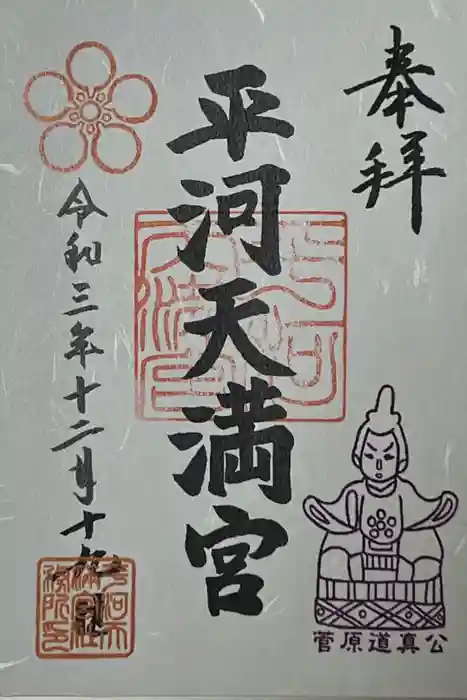 奉拝
平河天満宮
令和三年十二月十
菅原道真公